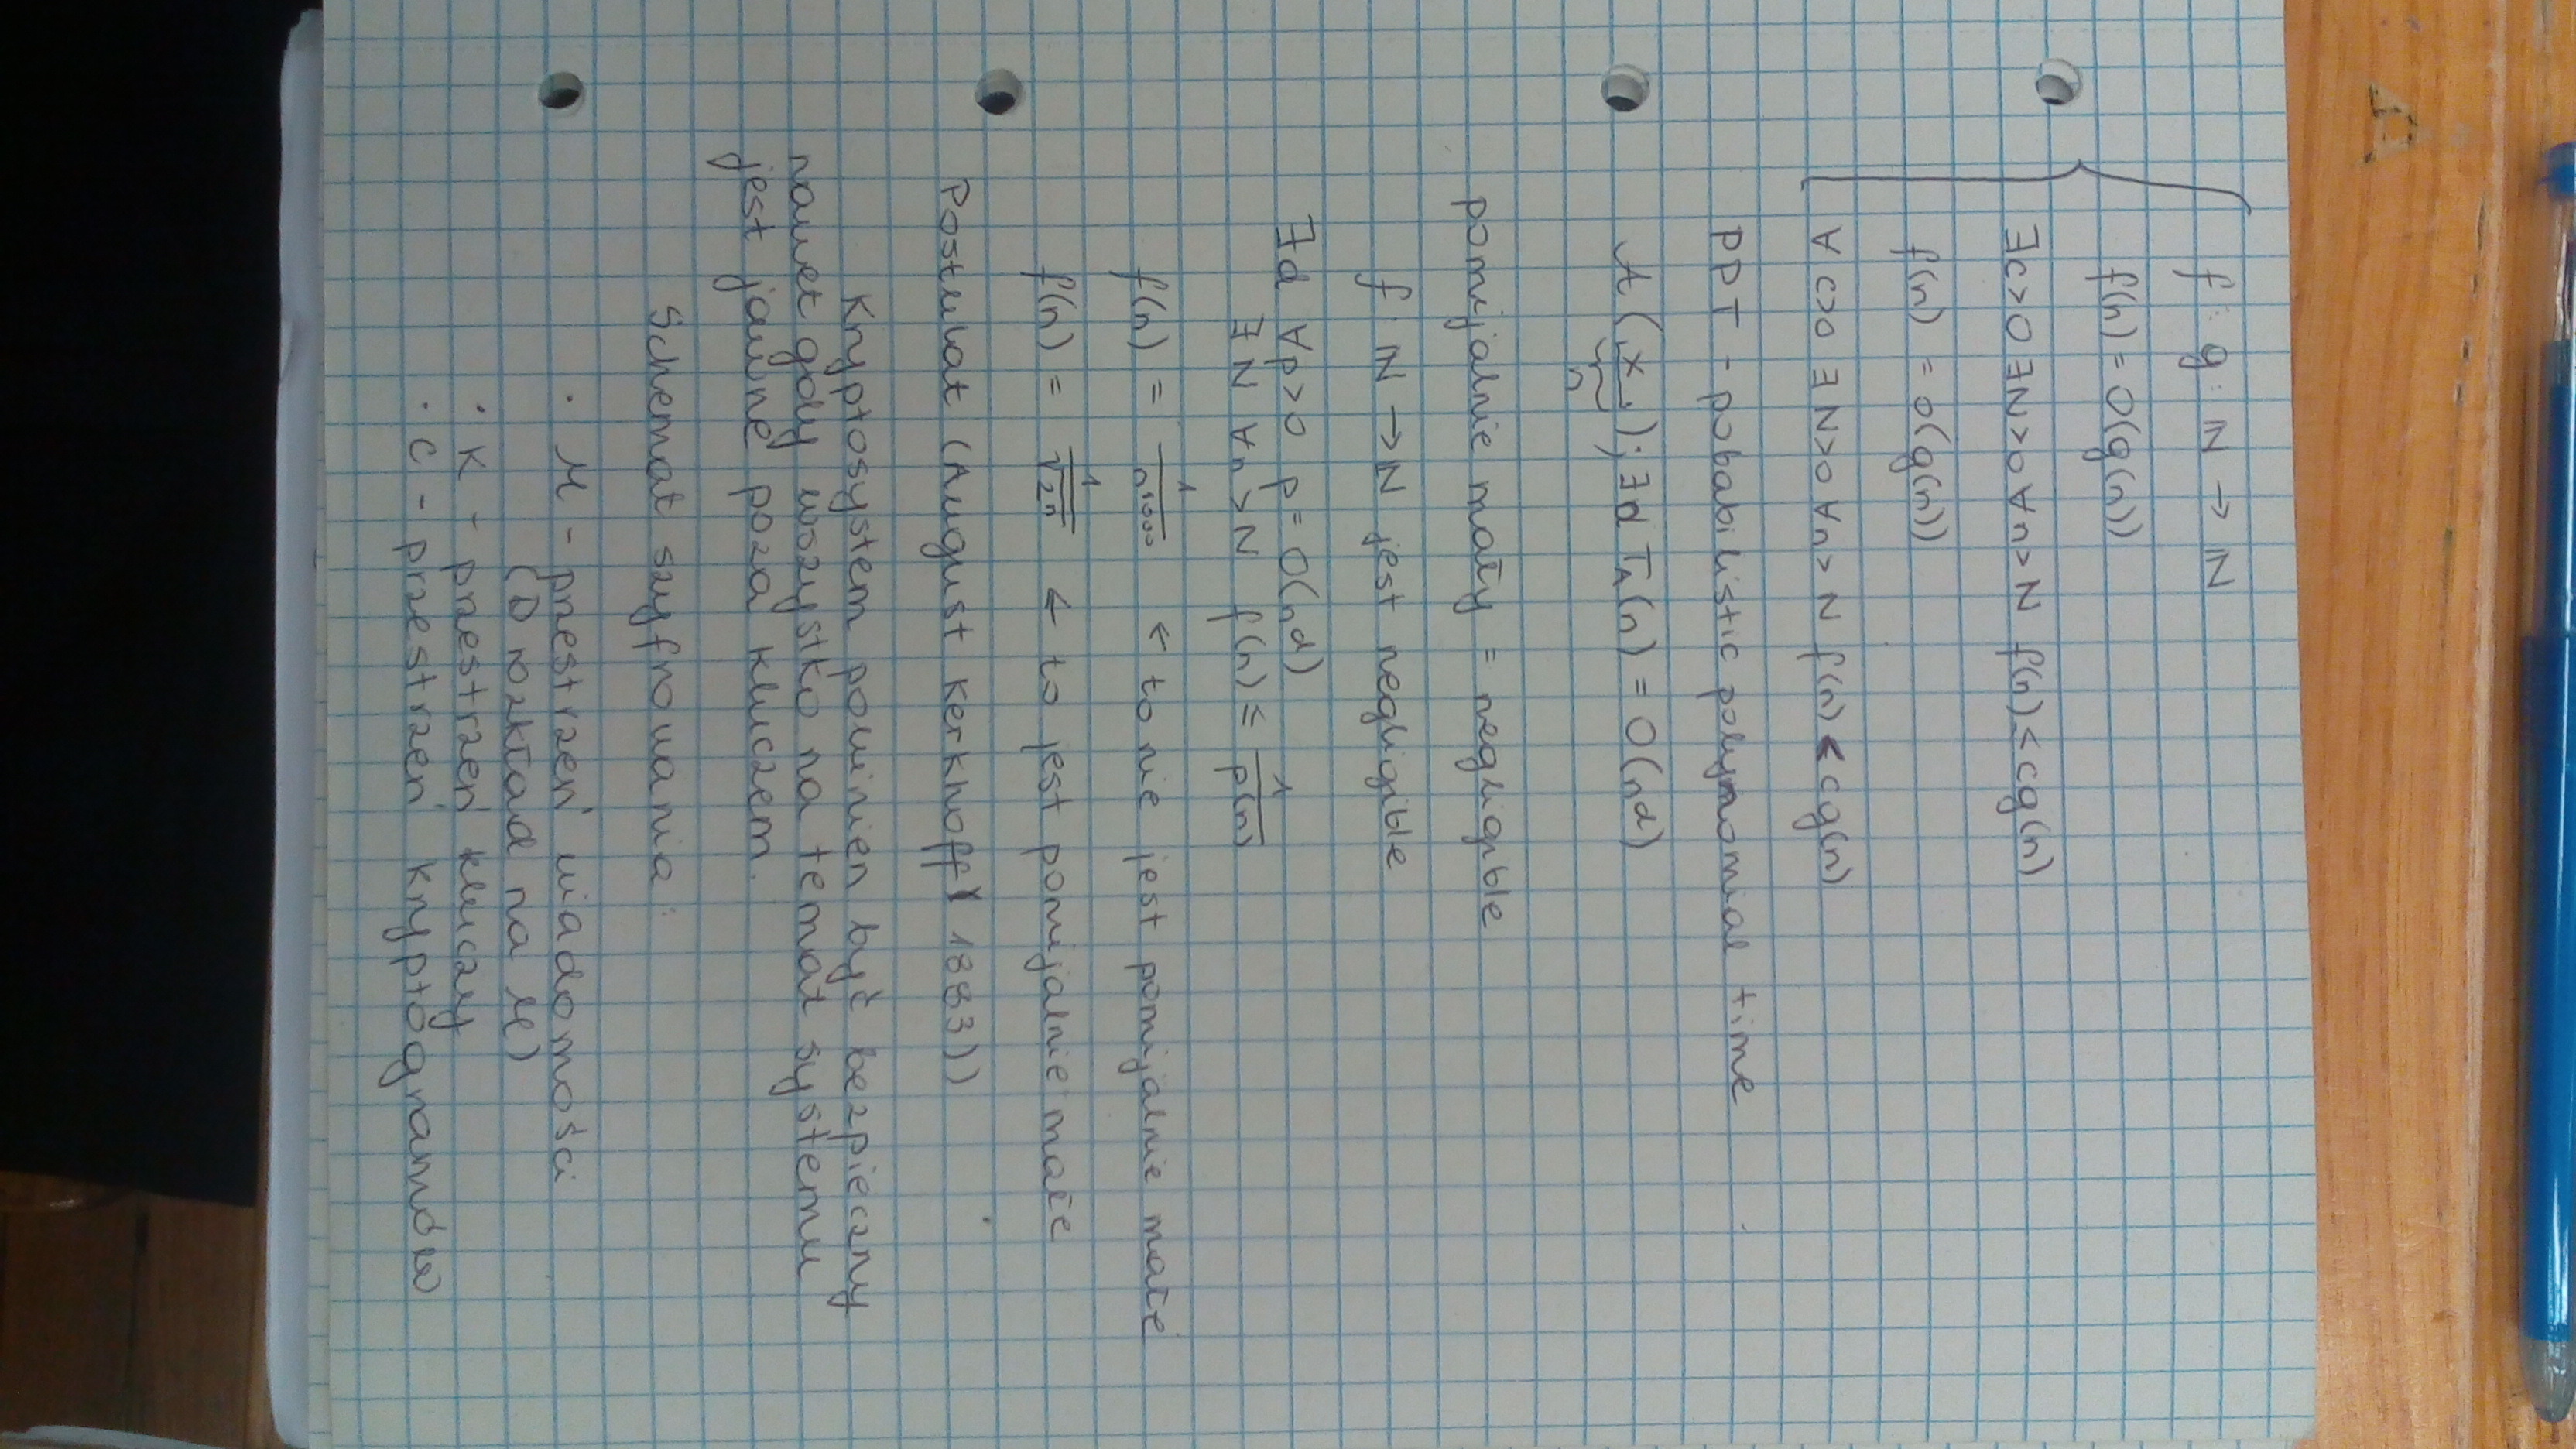 f: g: ℕ → ℕ
f(n) = O(g(n))
∃c>0 ∃N>0 ∀n>N f(n) < cg(n)
f(n) = o(g(n))
∀ c>0 ∃ N>0 ∀n>N f(n) < cg(n)
PPT - pobabilistic polynomial time
A(x); ∃d T_A(n) = O(n^d)
n
pomijalnie mały = negligible
f: ℕ → ℕ jest negligible
∃d ∀p>0 p = O(n^d)
∃ N ∀n>N f(n) ≤ 1/p(n)
f(n) = 1/n^1000 ← to nie jest pomijalnie małe
f(n) = 1/√2^n ← to jest pomijalnie małe
Postulat (August Kerkhoff 1883))
Kryptosystem powinien być bezpieczny
nawet gdy wszystko na temat systemu
jest jawne poza kluczem.
Schemat szyfrowania:
· M - przestrzeń wiadomości
(D rozkład na M)
· K - przestrzeń kluczy
· C - przestrzeń kryptogramów